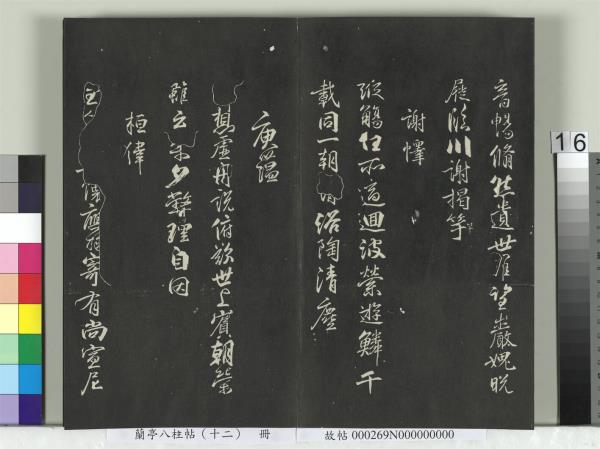 音暢翛然遺世難望巖愧脫
屣臨川謝揭竿
謝懌
縱觴任所適迴波縈遊鱗千
載同一朝沐浴陶清塵
庾蘊
想虛舟說俯歎世上賓朝榮
雖云樂夕斃理自因
桓偉
主人懷應物寄有尚宣尼
16
蘭亭八柱帖(十二) 冊
故帖 000269N000000000